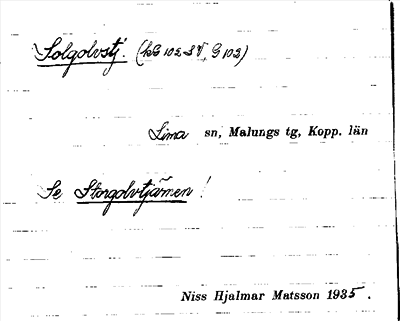 Solgolvstj. (kB 102 SV, G 102)
Lima sn, Malungs tg, Kopp. län
Se Storgolvtjärnen!
Niss Hjalmar Matsson 1935.